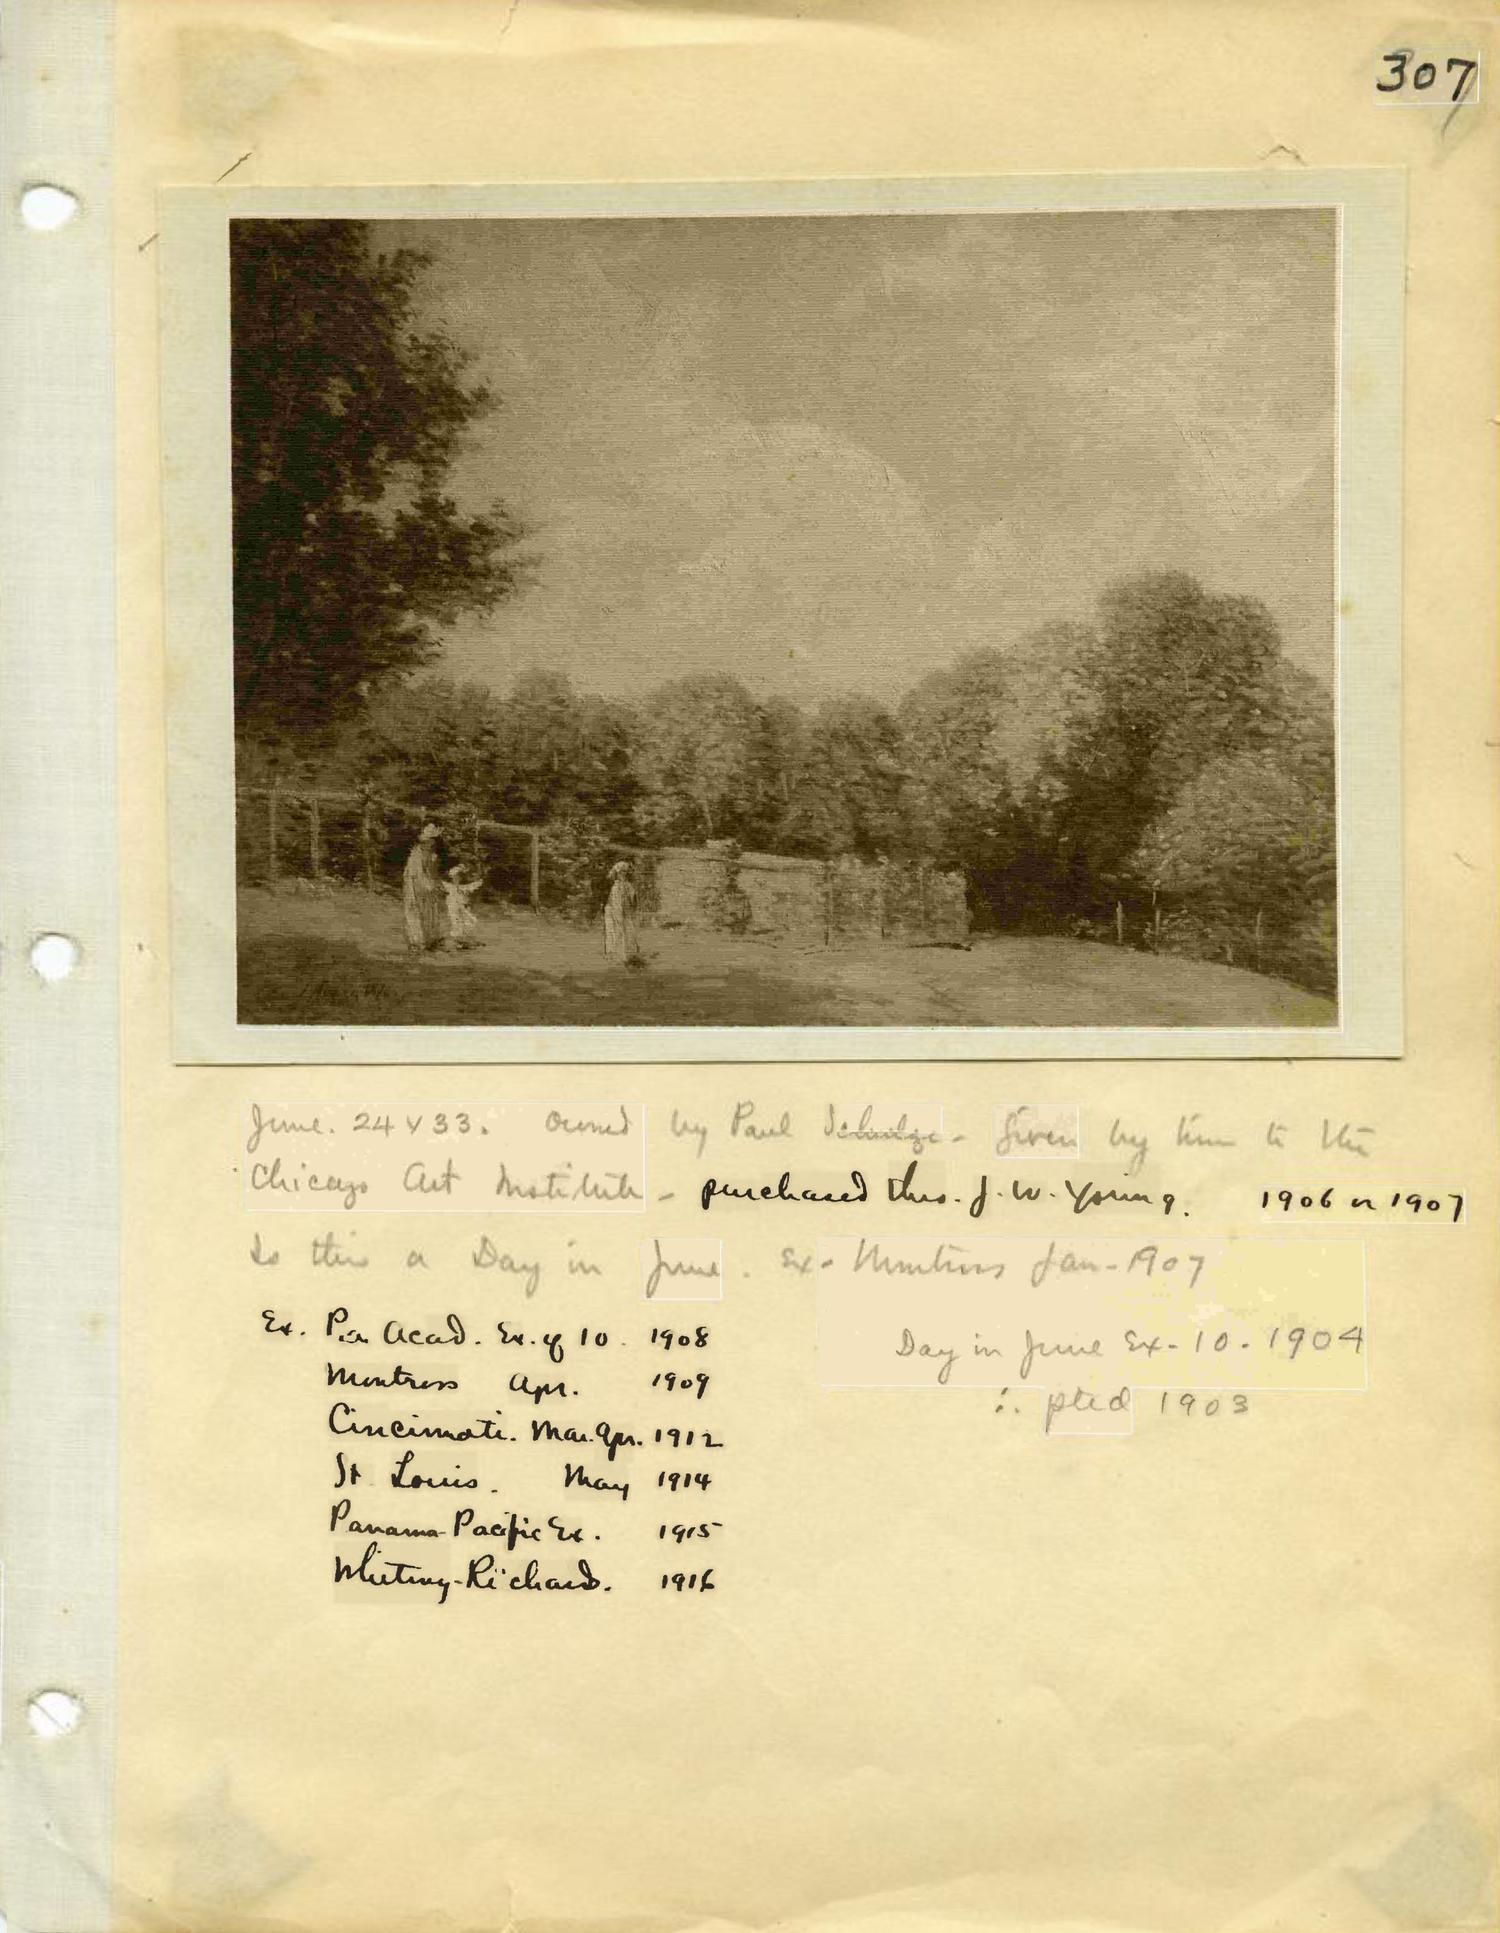 307
June. 24 x 33. Owned by Paul Schulze - Given by him to the
Chicago Art Institute - purchased thro. J. W. Young. 1906 or 1907
Is this a Day in June. Ex- Montross Jan-1907
Day in June Ex-10-1904
∴ pted 1903
Ex. Pa Acad. Ex. of 10. 1908
Montross Apr. 1909
Cincinnati. Mar. Apr. 1912
St Louis. May 1914
Panama-Pacific Ex. 1915
Whitney-Richards. 1916